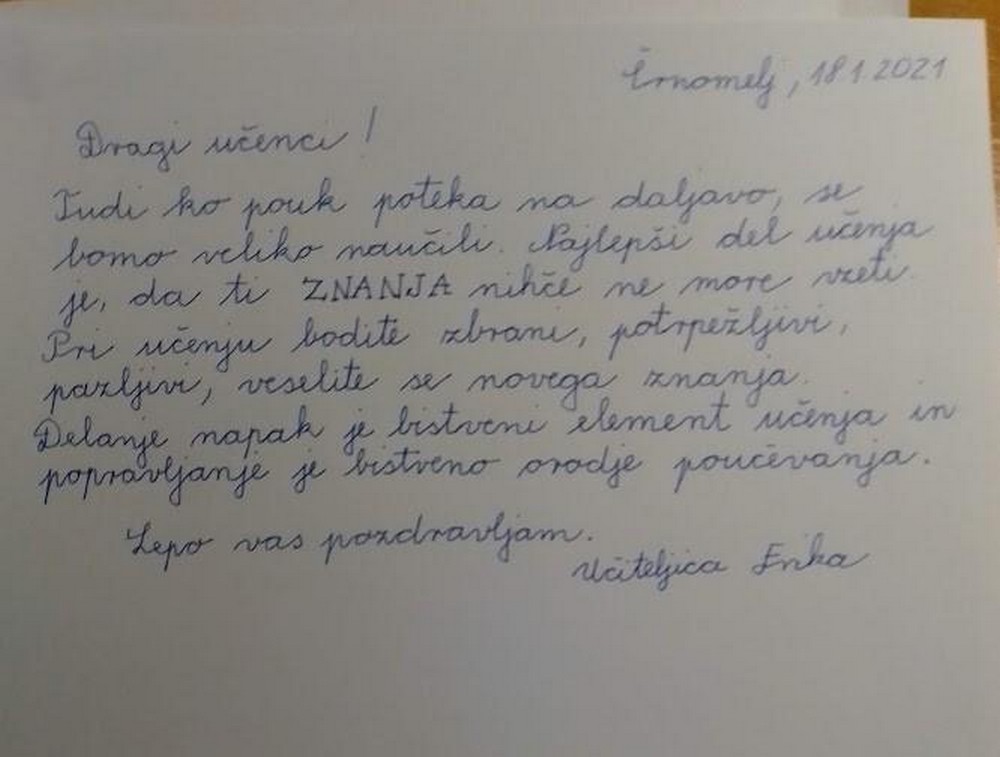 Črnomelj, 18.1.2021
Dragi učenci!
Tudi ko pouk poteka na daljavo, se
bomo veliko naučili. Najlepši del učenja
je, da ti ZNANJA nihče ne more vzeti.
Pri učenju bodite zbrani, potrpežljivi,
pazljivi, veselite se novega znanja.
Delanje napak je bistveni element učenja in
popravljanje je bistveno orodje poučevanja.
Lepo vas pozdravljam.
Učiteljica Erika